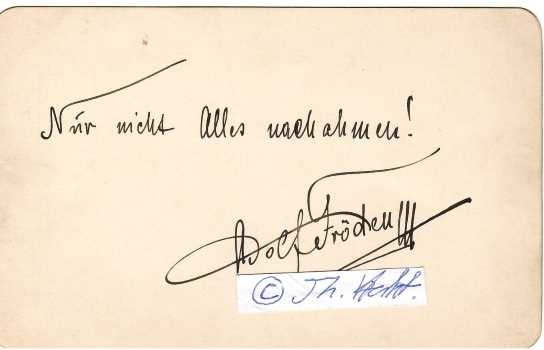 Nur nicht Alles nachahmen!
Adolf Fröden
© Th. Hecht.